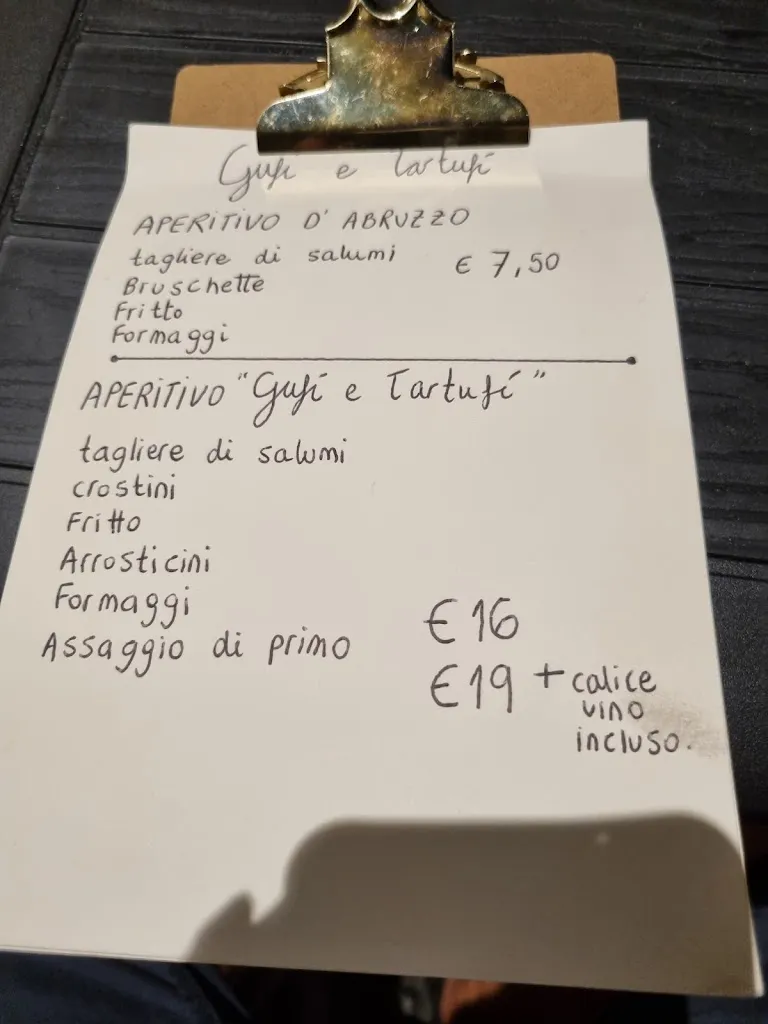 Gufi e Tartufi
APERITIVO D' ABRUZZO
tagliere di salumi € 7,50
Bruschette
Fritto
Formaggi
APERITIVO "Gufi e Tartufi"
tagliere di salumi
crostini
Fritto
Arrosticini
Formaggi
Assaggio di primo €16
€19 + calice
vino
incluso.